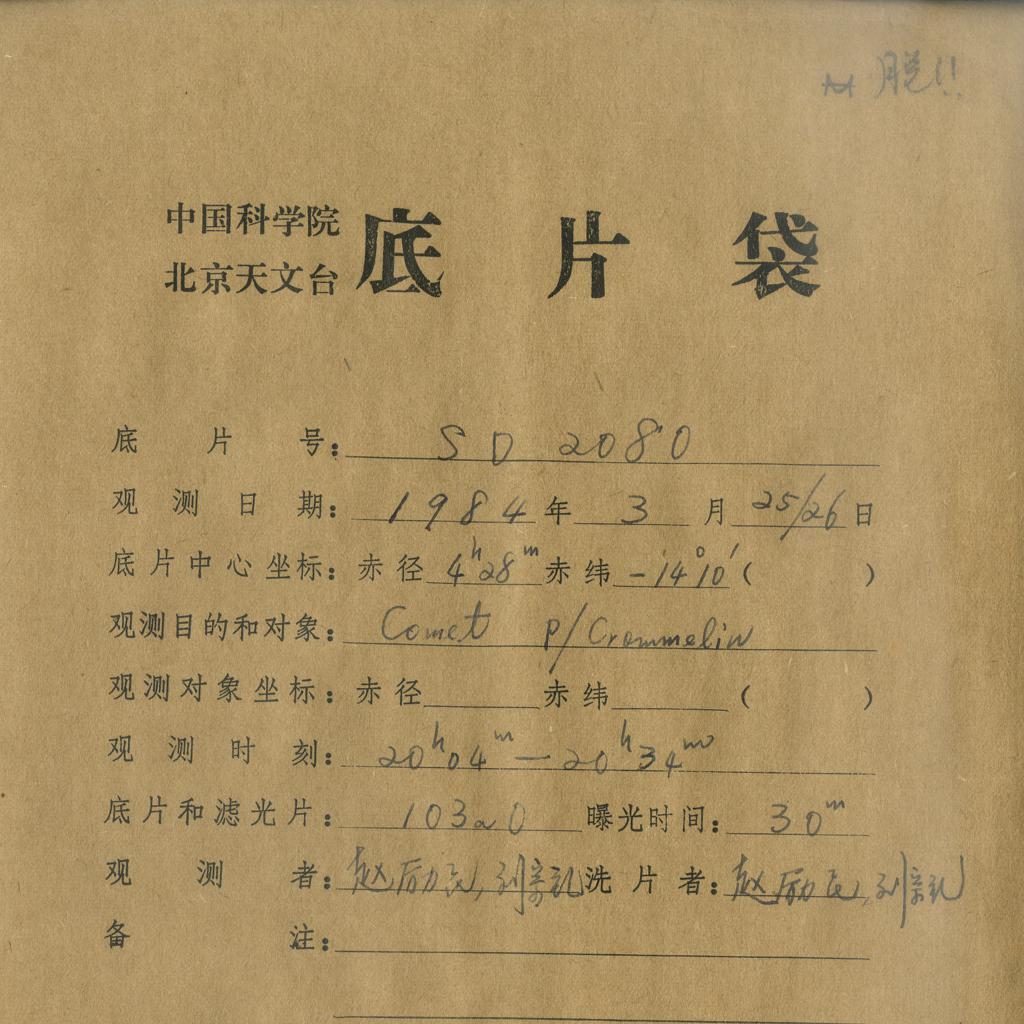 脱!!
中国科学院
北京天文台 底片袋
底片号: SD 2080
观测日期: 1984年 3月 25/26日
底片中心坐标: 赤径 4h28m 赤纬 -14°10′ ( )
观测目的和对象: Comet P/Crommelin
观测对象坐标: 赤径 赤纬 ( )
观测时刻: 20h04m — 20h34m
底片和滤光片: 103aO 曝光时间: 30m
观测者: 赵励民, 刘宗礼 洗片者: 赵励民, 刘宗礼
备注: